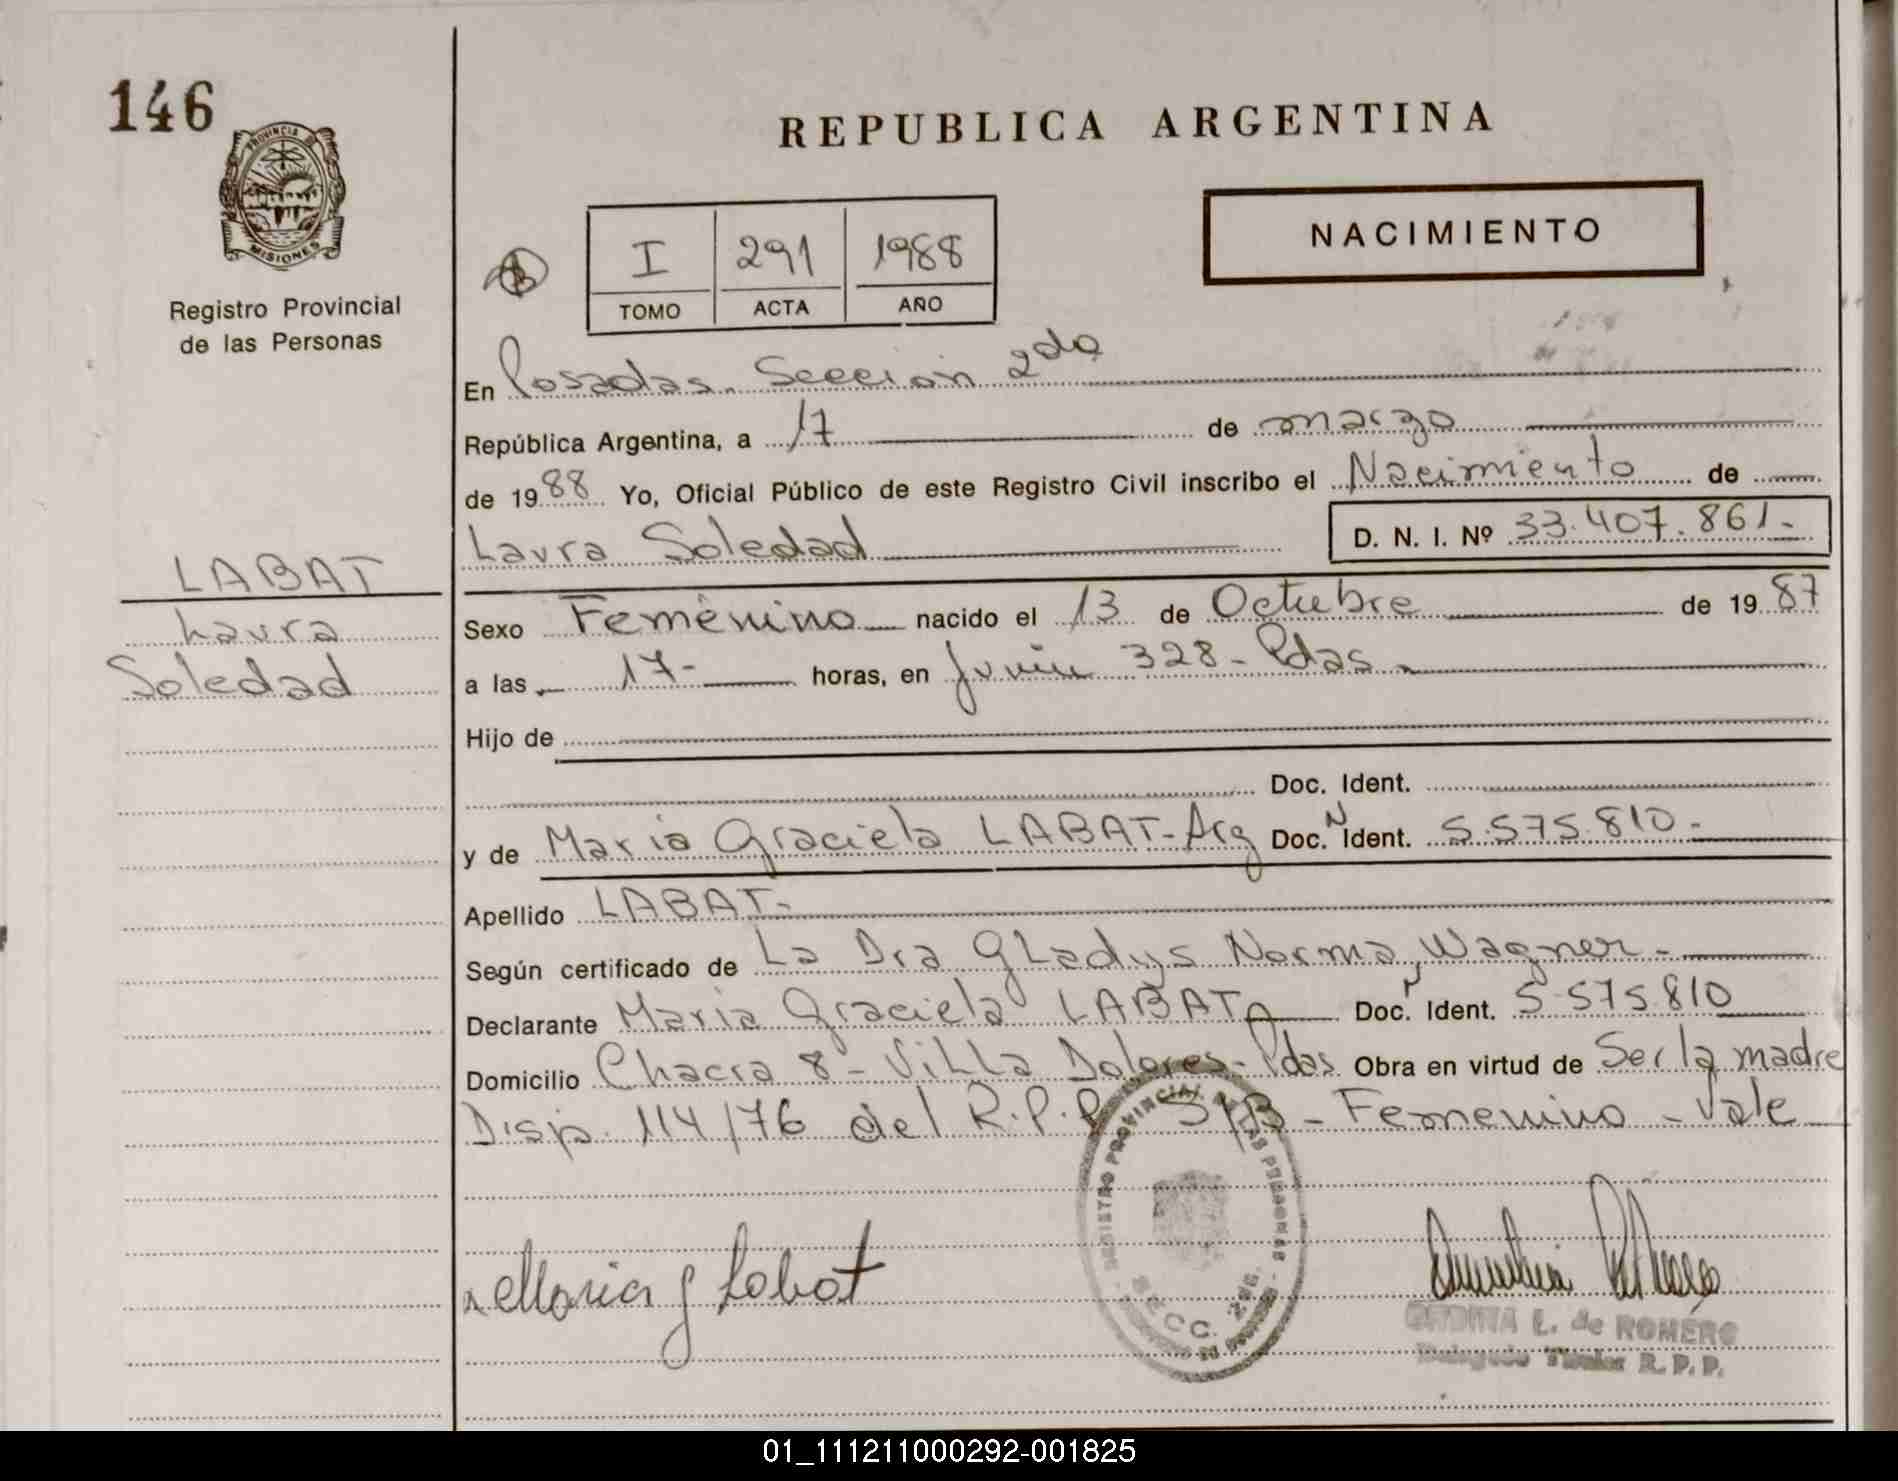 146
PROVINCIA DE
MISIONES
Registro Provincial
de las Personas
REPUBLICA ARGENTINA
NACIMIENTO
I 291 1988
TOMO ACTA AÑO
En Posadas. Sección 2da
República Argentina, a 17 de marzo
de 1988 Yo, Oficial Público de este Registro Civil inscribo el Nacimiento de
Laura Soledad D. N. I. Nº 33.407.861.-
LABAT
Laura
Soledad
Sexo Femenino nacido el 13 de Octubre de 1987
a las 17- horas, en Junin 328- Pdas
Hijo de
Doc. Ident.
y de Maria Graciela LABAT-Arg Doc. N Ident. 5.575.810.-
Apellido LABAT-
Según certificado de La Dra Gladys Norma Wagner-
Declarante Maria Graciela LABAT Doc. N Ident. 5.575.810
Domicilio Chacra 8- Villa Dolores- Pdas Obra en virtud de Ser la madre
Disp. 114/76 del R.P.P. S/B- Femenino - Vale
Maria G Labat
REGISTRO PROVINCIAL DE LAS PERSONAS
SECC. 2da.
L. de ROMERO
Delegado Titular R. P. P.
01_111211000292-001825